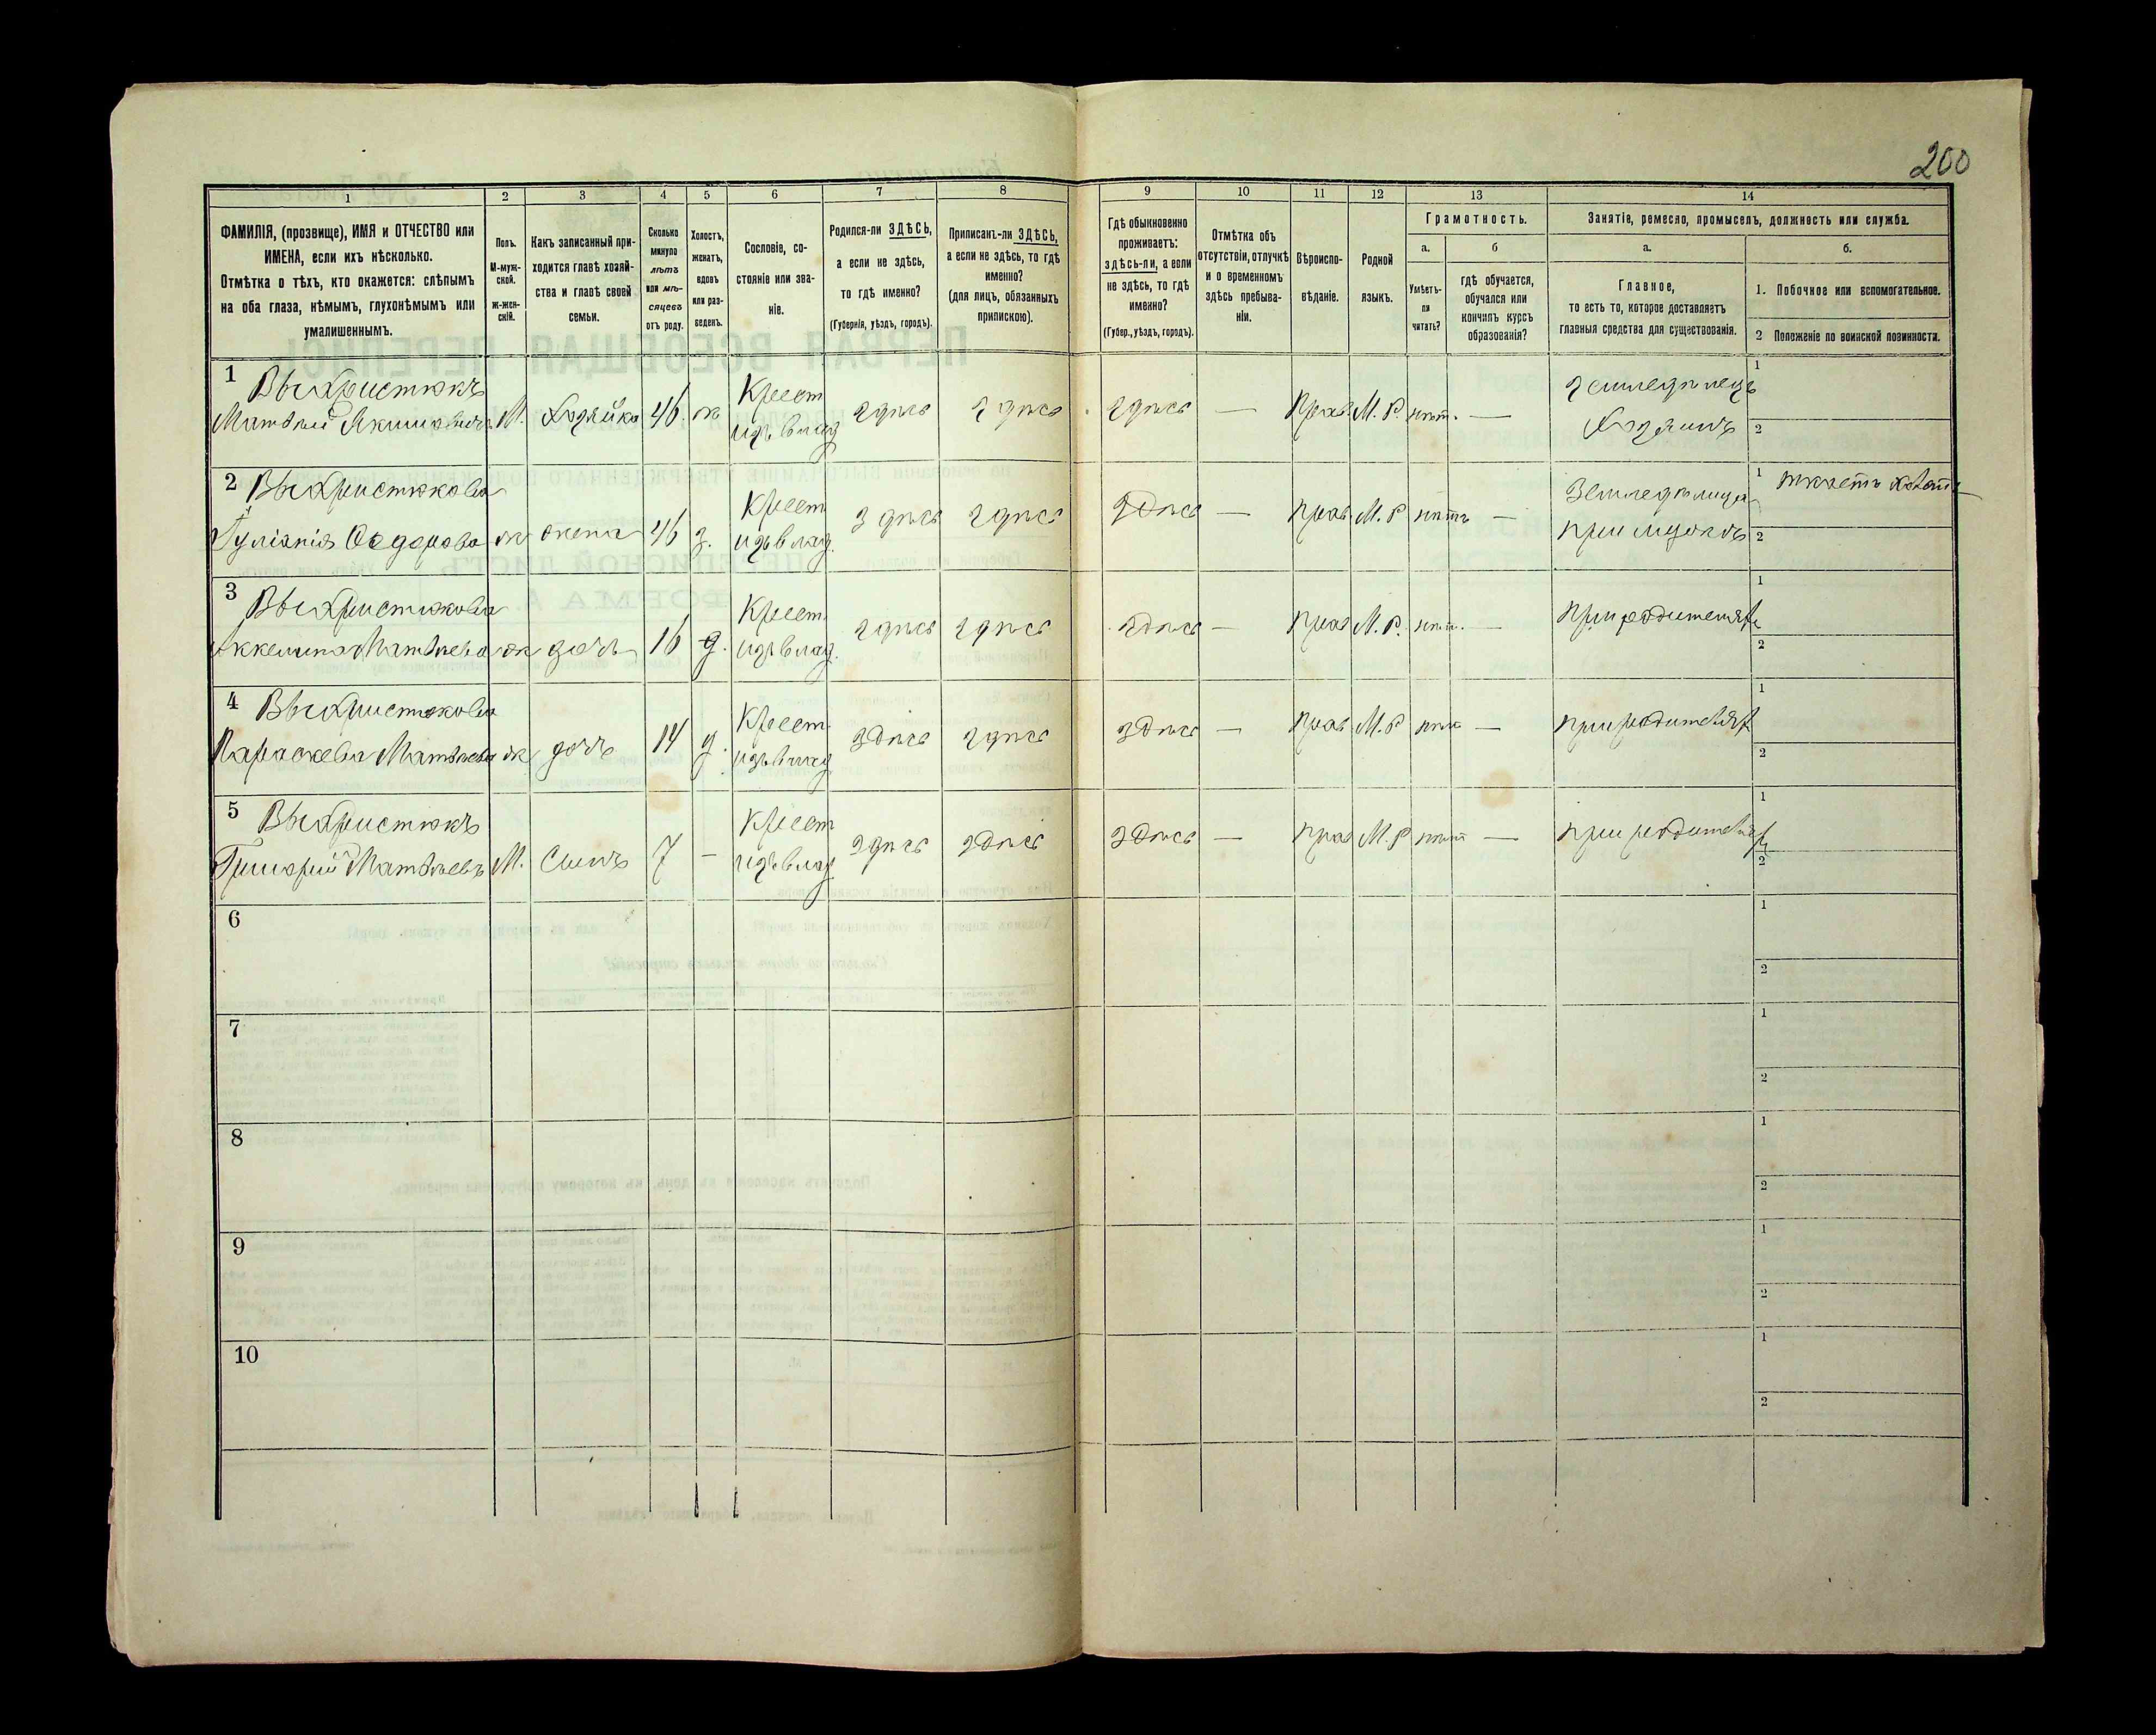 200
1 2 3 4 5 6 7 8 9 10 11 12 13 14
ФАМИЛІЯ, (прозвище), ИМЯ и ОТЧЕСТВО или
ИМЕНА, если ихъ нѣсколько.
Отмѣтка о тѣхъ, кто окажется: слѣпымъ
на оба глаза, нѣмымъ, глухонѣмымъ или
умалишеннымъ.
Полъ.
М-муж-
ской.
ж-жен-
скій.
Какъ записанный при-
ходится главѣ хозяй-
ства и главѣ своей
семьи.
Сколько
минуло
лѣтъ
или мѣ-
сяцевъ
отъ роду.
Холостъ,
женатъ,
вдовъ
или раз-
веденъ.
Сословіе, со-
стояніе или зва-
ніе.
Родился-ли ЗДѢСЬ,
а если не здѣсь,
то гдѣ именно?
(Губернія, уѣздъ, городъ).
Приписанъ-ли ЗДѢСЬ,
а если не здѣсь, то гдѣ
именно?
(для лицъ, обязанныхъ
припискою).
Гдѣ обыкновенно
проживаетъ:
здѣсь-ли, а если
не здѣсь, то гдѣ
именно?
(Губер., уѣздъ, городъ).
Отмѣтка объ
отсутствіи, отлучкѣ
и о временномъ
здѣсь пребыва-
ніи.
Вѣроиспо-
вѣданіе.
Родной
языкъ.
Грамотность.
а.
Умѣетъ-
ли
читать?
б
гдѣ обучается,
обучался или
кончилъ курсъ
образованія?
Занятіе, ремесло, промыселъ, должность или служба.
а.
Главное,
то есть то, которое доставляетъ
главныя средства для существованія.
б.
1. Побочное или вспомогательное.
2 Положеніе по воинской повинности.
1 Выхристюкъ
Матвѣй М. 46. Крест
изъ влад здѣсь здѣсь здѣсь — Прав. М. Р. нѣт. — Земледѣлецъ
Хозяинъ
1
2
2 Выхристюкова
ж жена 46 з. Крест
изъ влад. здѣсь здѣсь здѣсь — прав. М. Р нѣтъ —
при мужѣ
1 ткетъ
2
3 Выхристюкова
Матвѣева ж дочь 16 д. Крест.
изъ влад. здѣсь здѣсь здѣсь — прав М. Р. нѣт. — При родителях
1
2
4 Выхристюкова
Параскева Матвѣева ж дочь 14 д. Крест.
изъ влад здѣсь здѣсь здѣсь — прав М. Р нѣт — при родителях
1
2
5 Выхристюкъ
Григорій Матвѣевъ М. Сынъ 7 — Крест
изъ влад здѣсь здѣсь здѣсь — прав М. Р нѣт — при родителях
1
2
6
1
2
7
1
2
8
1
2
9
1
2
10
1
2